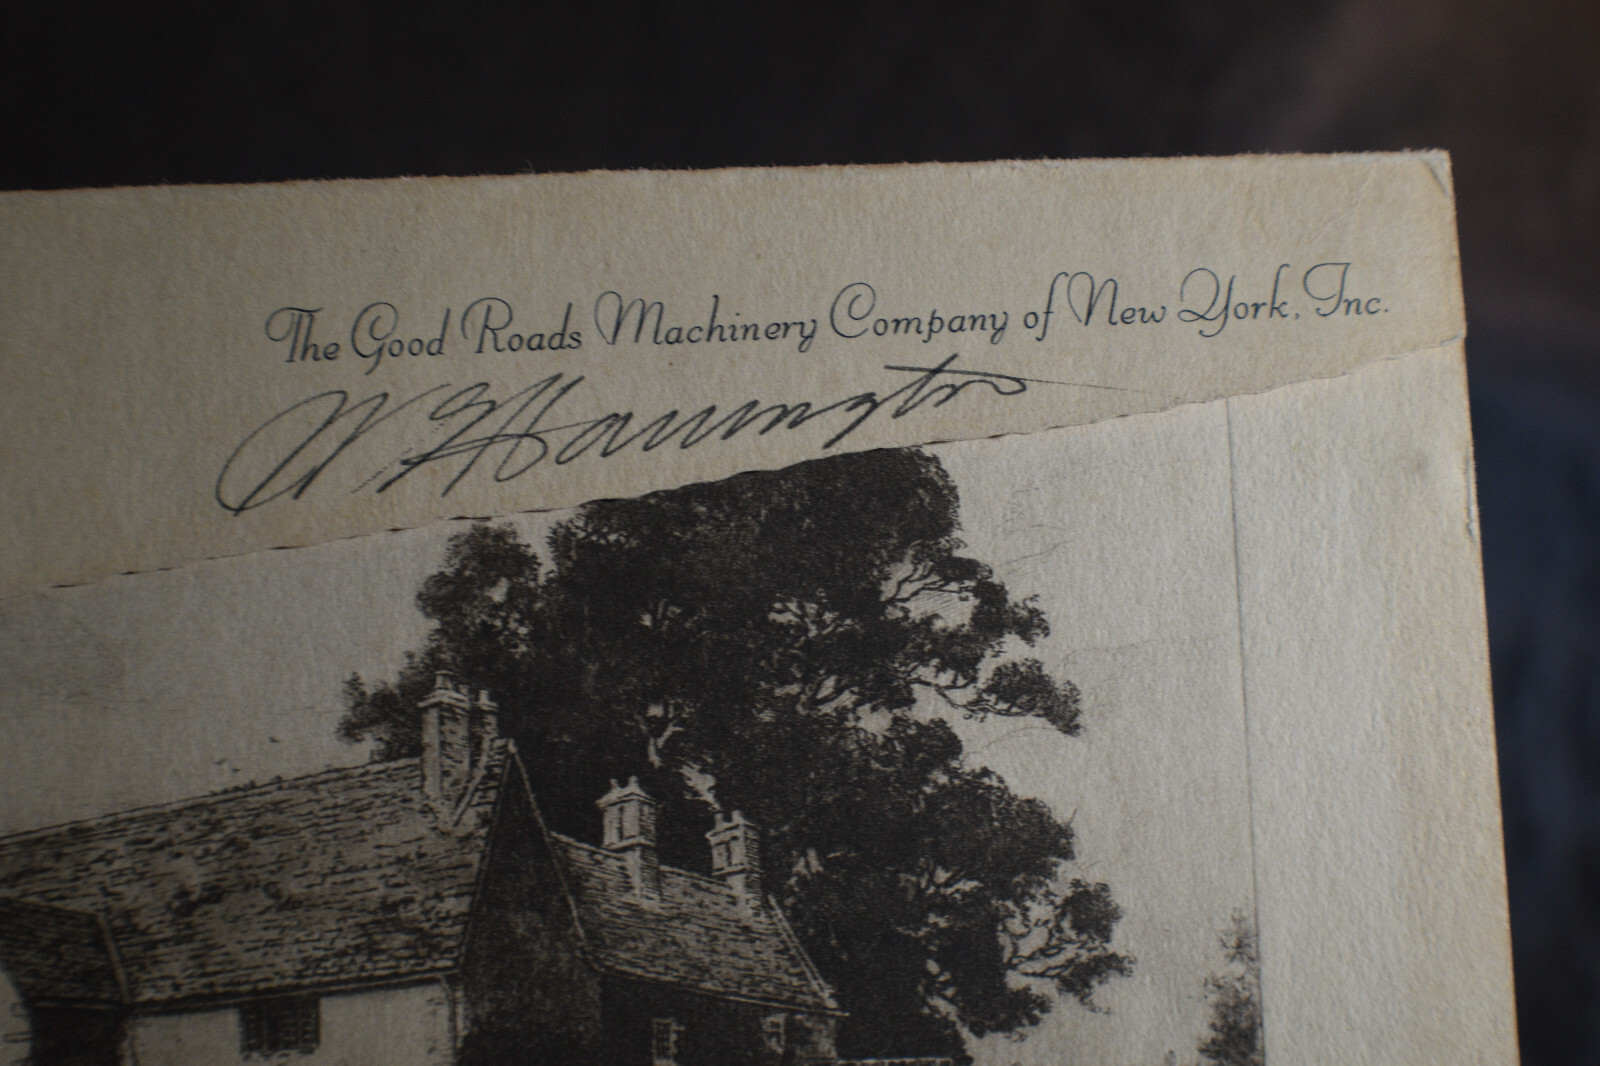 The Good Roads Machinery Company of New York, Inc.
Harrington